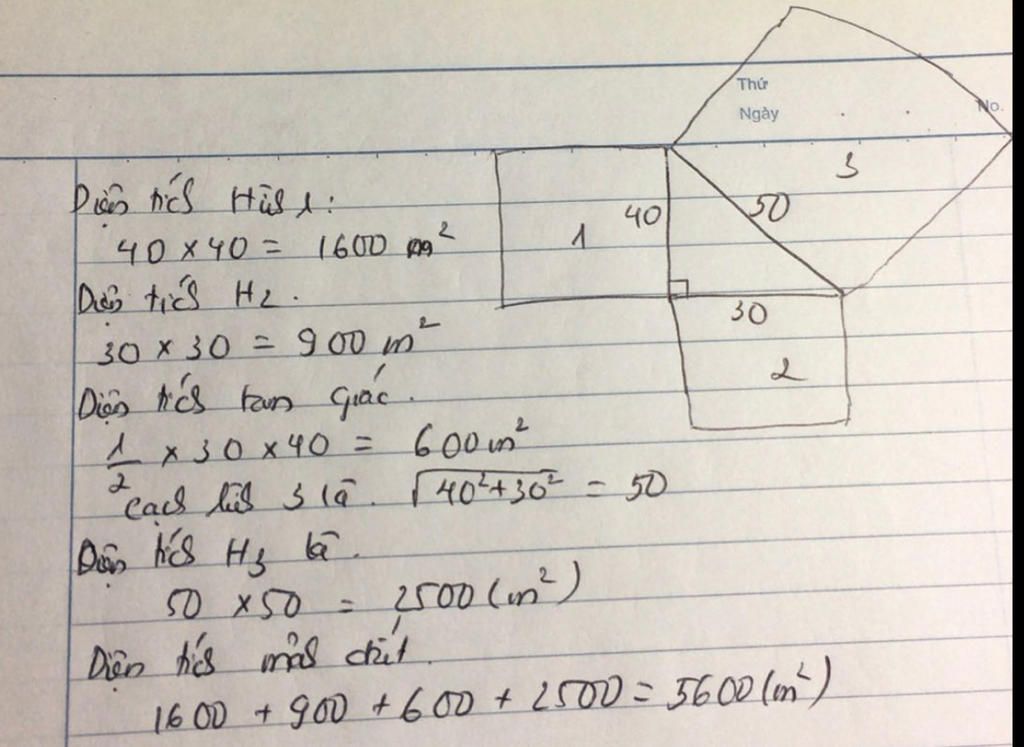 Thứ
Ngày
No.
3
50
40
1
30
2
Diện tích Hình 1:
40 × 40 = 1600 m²
Diện tích H2.
30 × 30 = 900 m²
Diện tích tam giác.
1/2 × 30 × 40 = 600 m²
Cạnh hình 3 là. √(40²+30²) = 50
Diện tích H3 là.
50 × 50 = 2500 (m²)
Diện tích mảnh đất.
1600 + 900 + 600 + 2500 = 5600 (m²)